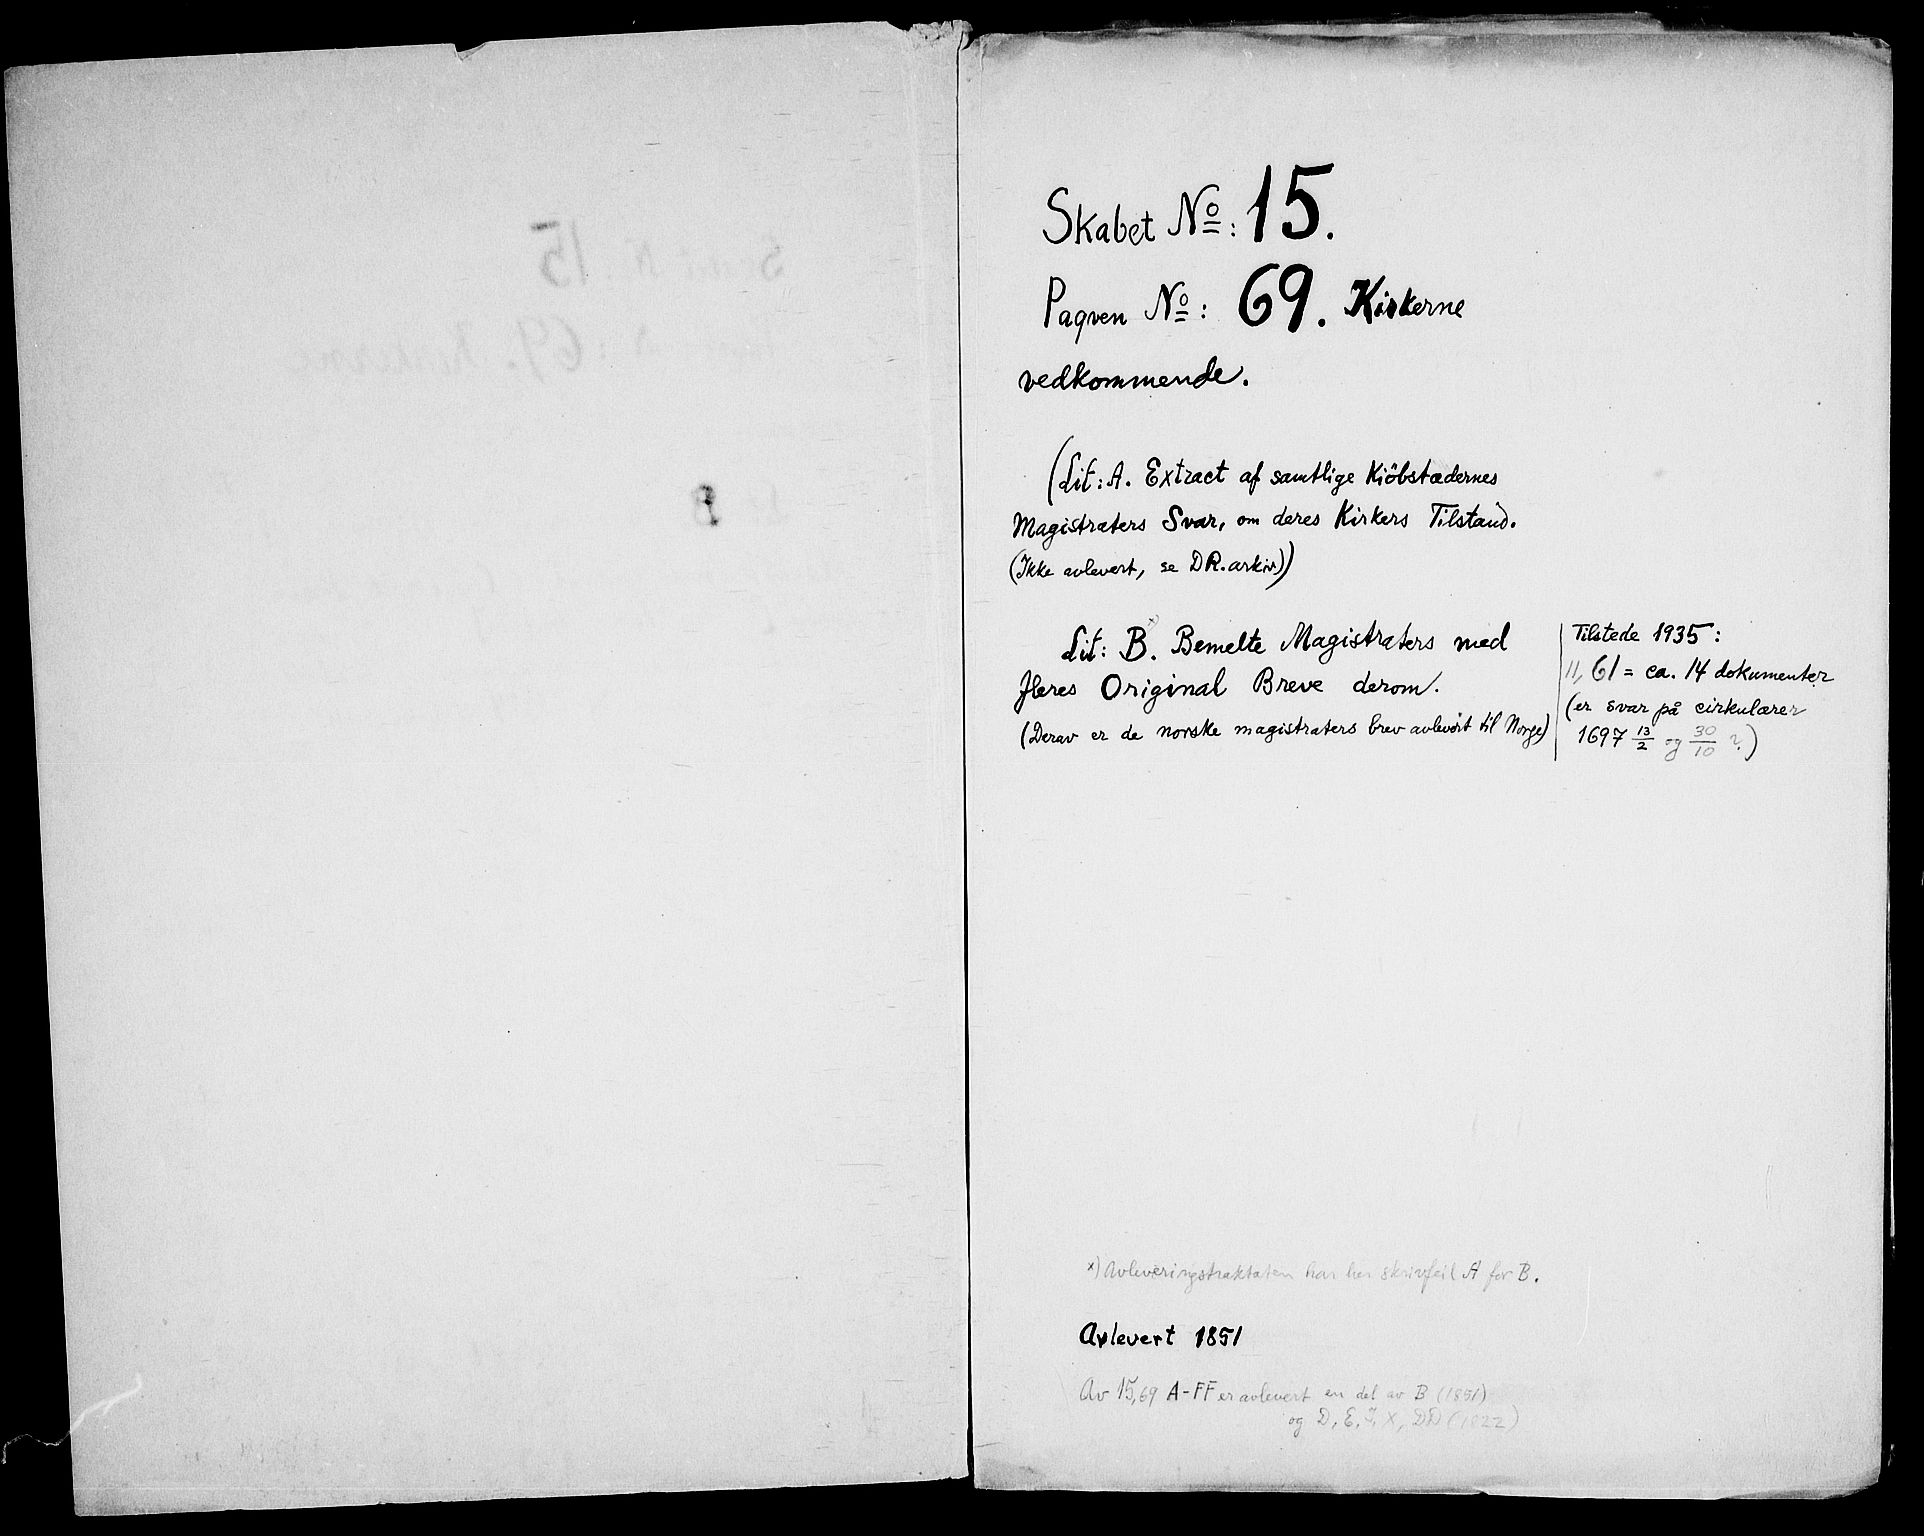 Skabet No: 15.
Paqven No: 69. Kirkerne
vedkommende.
(Lit: A. Extract af samtlige Kiöbstædernes
Magistraters Svar, om deres Kirkers Tilstand.
(Ikke avlevert, se DR.arkiv))
Lit: B.x) Bemelte Magistraters med
fleres Original Breve derom.
(Derav er de norske magistraters brev avlevert til Norge)
Tilstede 1935:
11, 61 = ca. 14 dokumenter
(er svar på cirkulærer
1697 13/2 og 30/10 ?)
x) Avleveringstraktaten har her skrivfeil A for B.
Avlevert 1851
Av 15,69 A-FF er avlevert en del av B (1851)
og D, E, I, X, DD (1822)